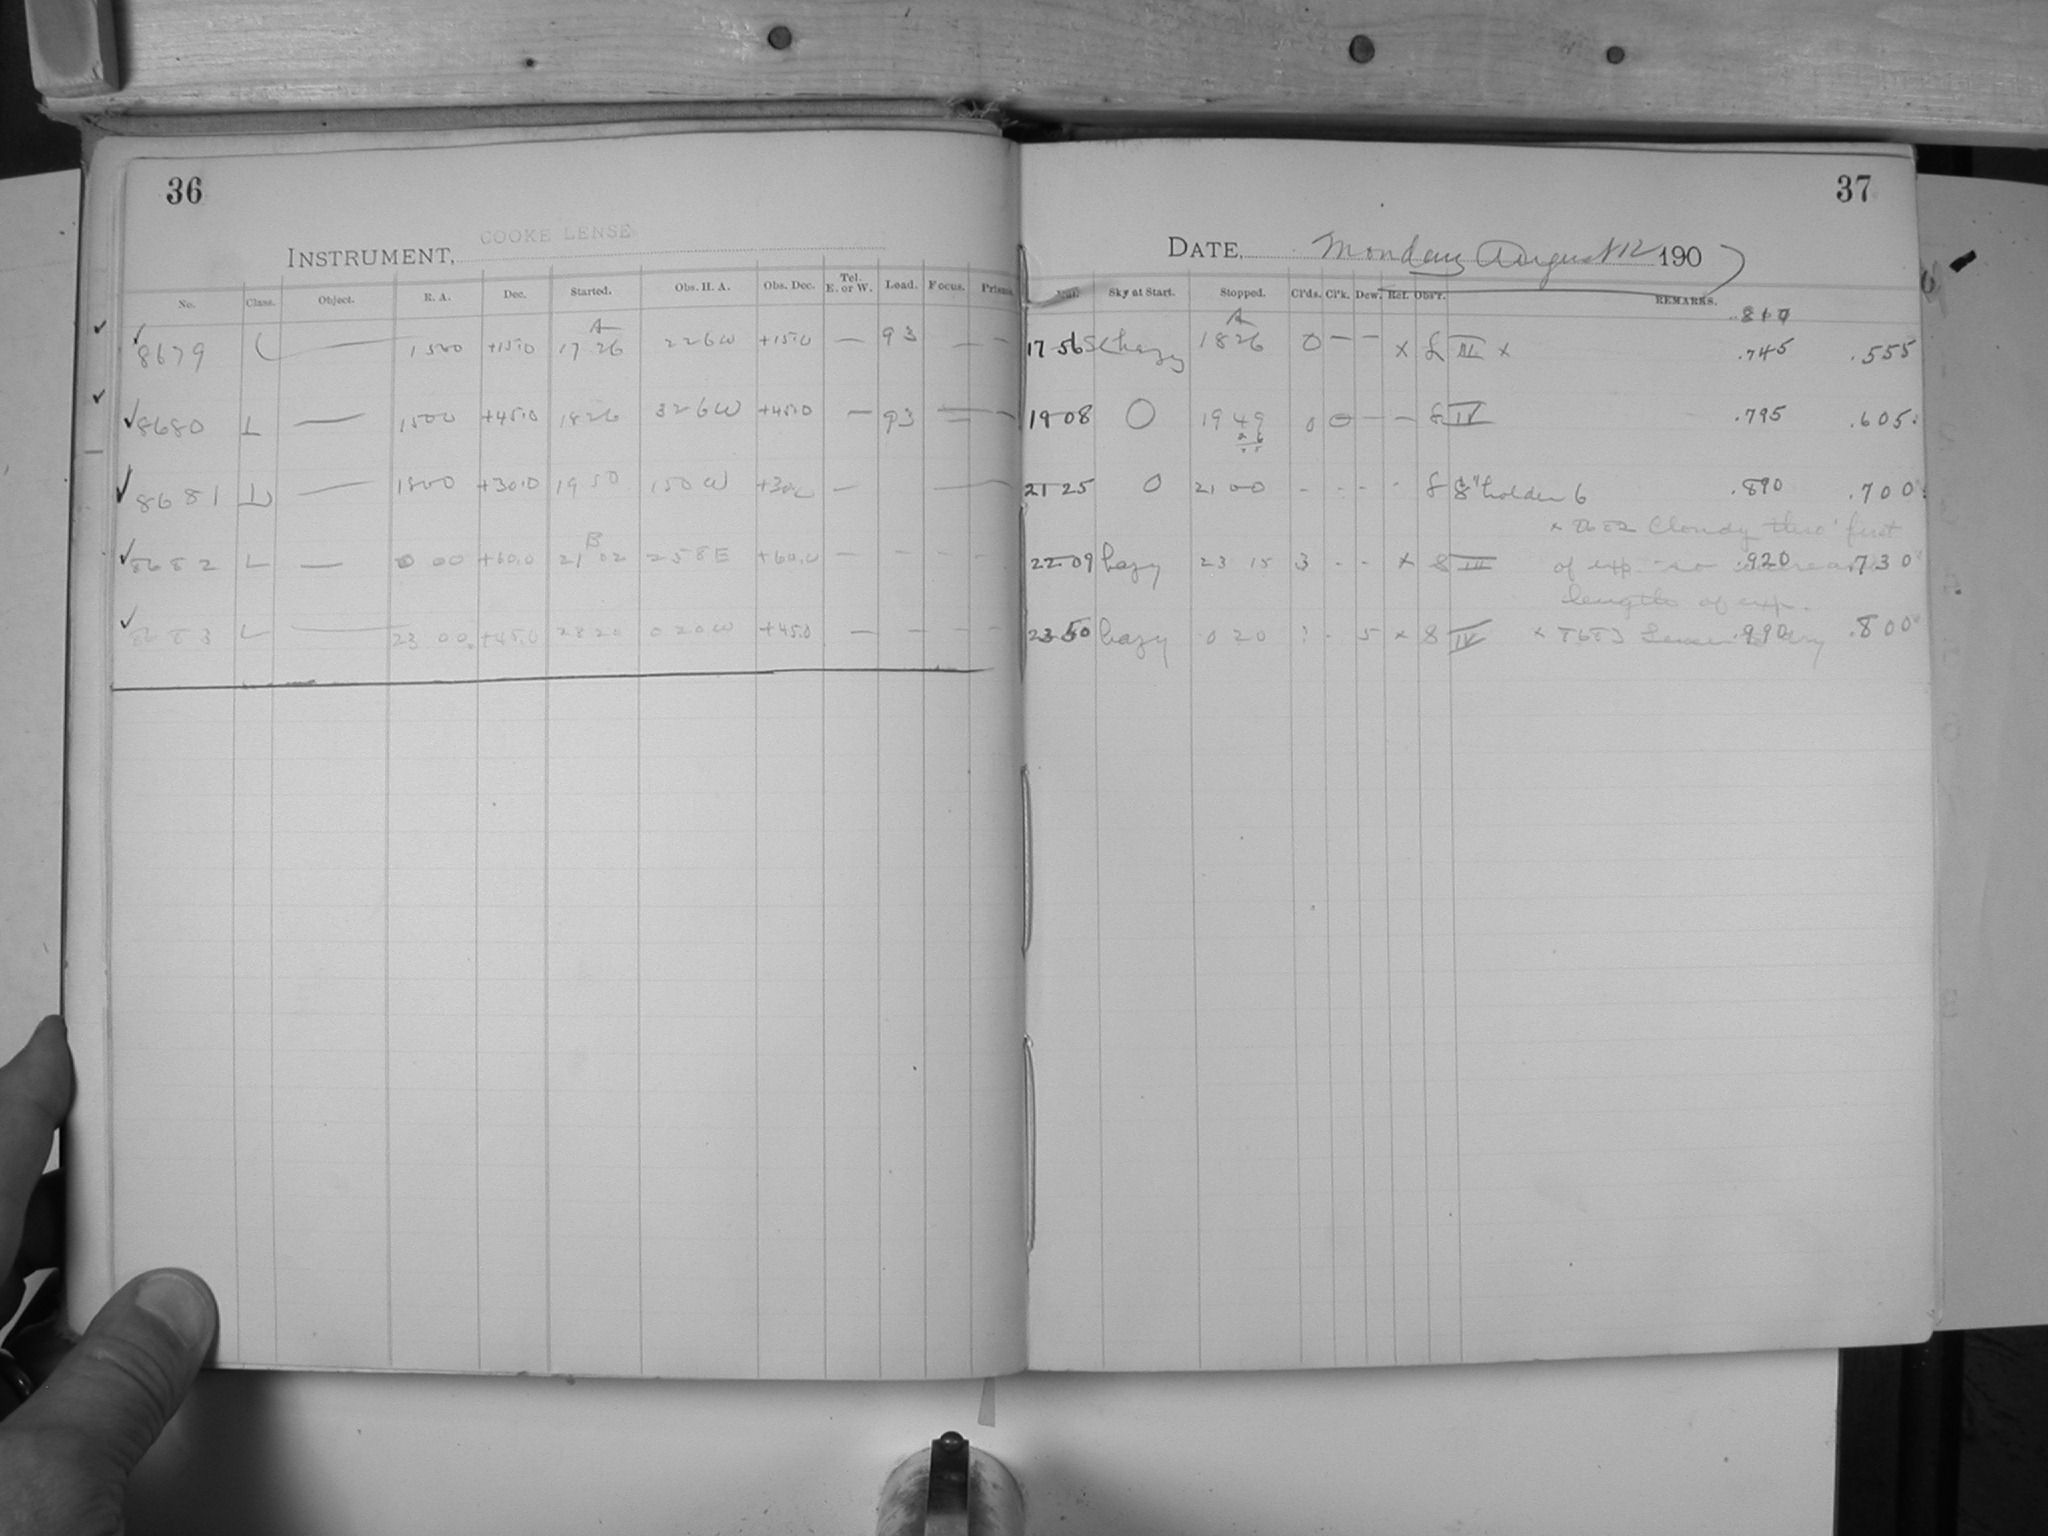 36
COOKE LENSE
INSTRUMENT,
No. Class. Object. R. A. Dec. Started. Obs. H. A. Obs. Dec. Tel. E. or W. Load. Focus. Prisms.
A
8679 L — 1500 +15.0 17 26 226W +15.0 — 93 — —
8680 L — 1500 +45.0 1826 326W +45.0 — 93 — —
8681 L — 1800 +30.0 1950 150W +30.0 — —
B
8682 L — 0 00 +60.0 21 02 258E +60.0 — - - -
8683 L — 23 00 +45.0 2320 020W +45.0 — — - -
37
DATE, Monday August 12 1907
Sky at Start. Stopped. Cl'ds. Cl'k. Dew. Ref. Obs'r. REMARKS.
A .810
17 56 hazy 1826 0 — — × III × .745 .555
19 08 0 19 49 0 0 — — IV .795 .605
26
21 25 0 21 00 - - - - 8" holder 6 .890 .700
× 8682 Cloudy thro' first
22 09 hazy 23 15 3 - - × III of exp. so .920 .730
length of exp.
23 50 hazy 0 20 ? - 5 × IV × 8683 .990 .800